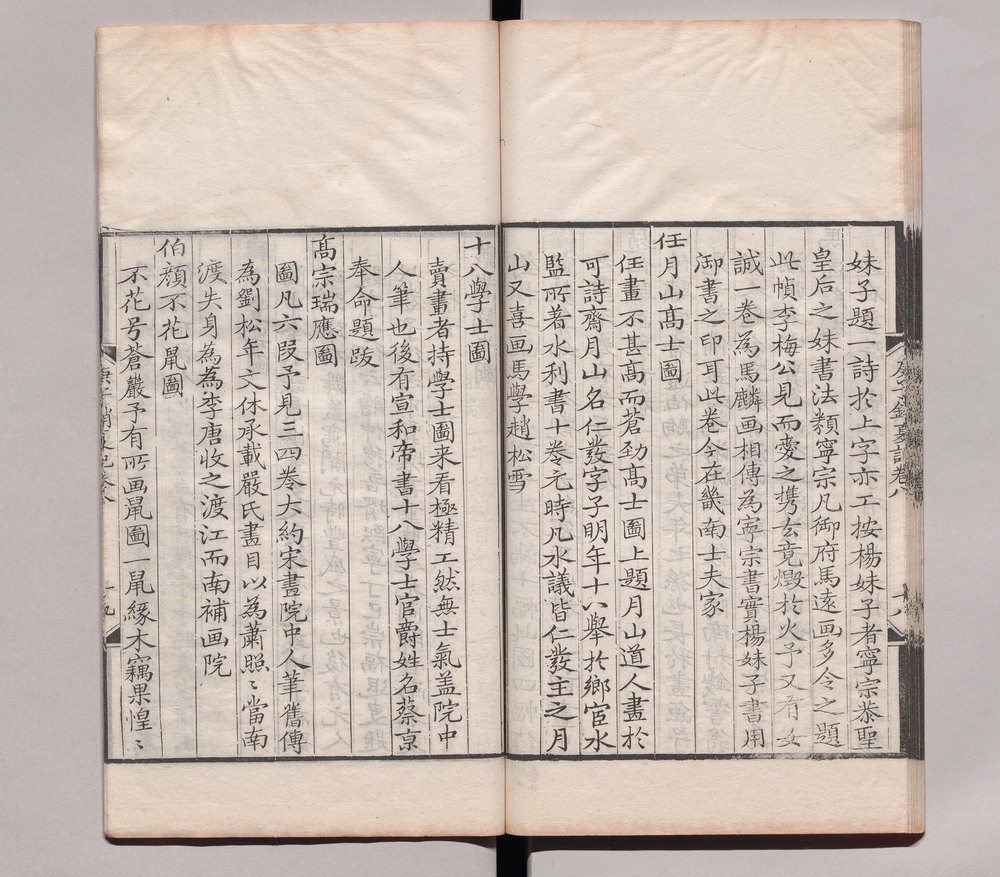 妹子題一詩於上字亦工按楊妹子者寧宗恭聖
皇后之妹書法類寧宗凡御府馬遠画多令之題
此幀李梅公見而愛之携去竟燬於火予又有女
誡一卷為馬麟画相傳為寧宗書實楊妹子書用
御書之印耳此卷今在畿南士夫家
任月山髙士圖
任畫不甚髙而蒼勁髙士圖上題月山道人畫於
可詩齋月山名仁發字子明年十八舉於鄉宦水
監所著水利書十卷元時凡水議皆仁發主之月
山又喜画馬學趙松雪
庚子銷夏記卷八
十八
十八學士圖
賣畫者持學士圖来看極精工然無士氣盖院中
人筆也後有宣和帝書十八學士官爵姓名蔡京
奉命題跋
髙宗瑞應圖
圖凡六段予見三四卷大約宋畫院中人筆舊傳
為劉松年文休承載嚴氏畫目以為蕭照〻當南
渡失身為為李唐收之渡江而南補画院
伯顔不花鼠圖
不花号蒼巖予有所画鼠圖一鼠緣木竊果惶〻
庚子銷夏記卷八
十九